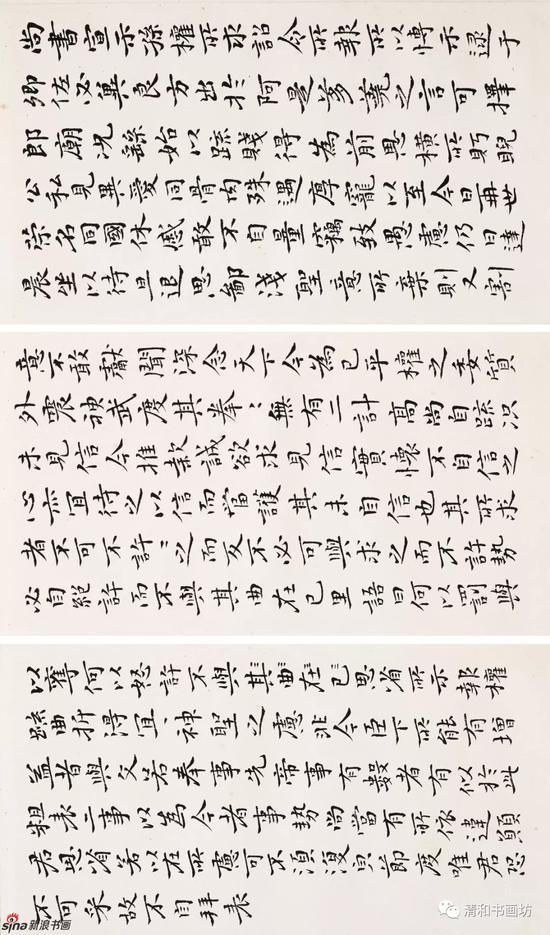 尚書宣示孫權所求詔令所報所以博示逮于
卿佐必冀良方出於阿是芻蕘之言可擇
郎廟況繇始以疏賤得為前恩橫所眄睨
公私見異愛同骨肉殊遇厚寵以至今日再世
榮名同國休慼敢不自量竊致愚慮仍日達
晨坐以待旦退思鄙淺聖意所棄則又割
意不敢獻聞深念天下今為已平權之委質
外震神武度其拳〻無有二計高尚自疏況
未見信今推款誠欲求見信實懷不自信之
心亦宜待之以信而當護其未自信也其所求
者不可不許〻之而反不必可與求之而不許勢
必自絕許而不與其曲在己里語曰何以罰與
以奪何以怒許不與其曲在己思省所示報權
疏曲折得宜〻神聖之慮非今臣下所能有增
益昔與文若奉事先帝事有數者有似於此
粗表二事以為今者事勢尚當有所依違願
君思省若以在所慮可不須復皃節度唯君恐
不可采故不自拜表
sina新浪书画
清和书画坊